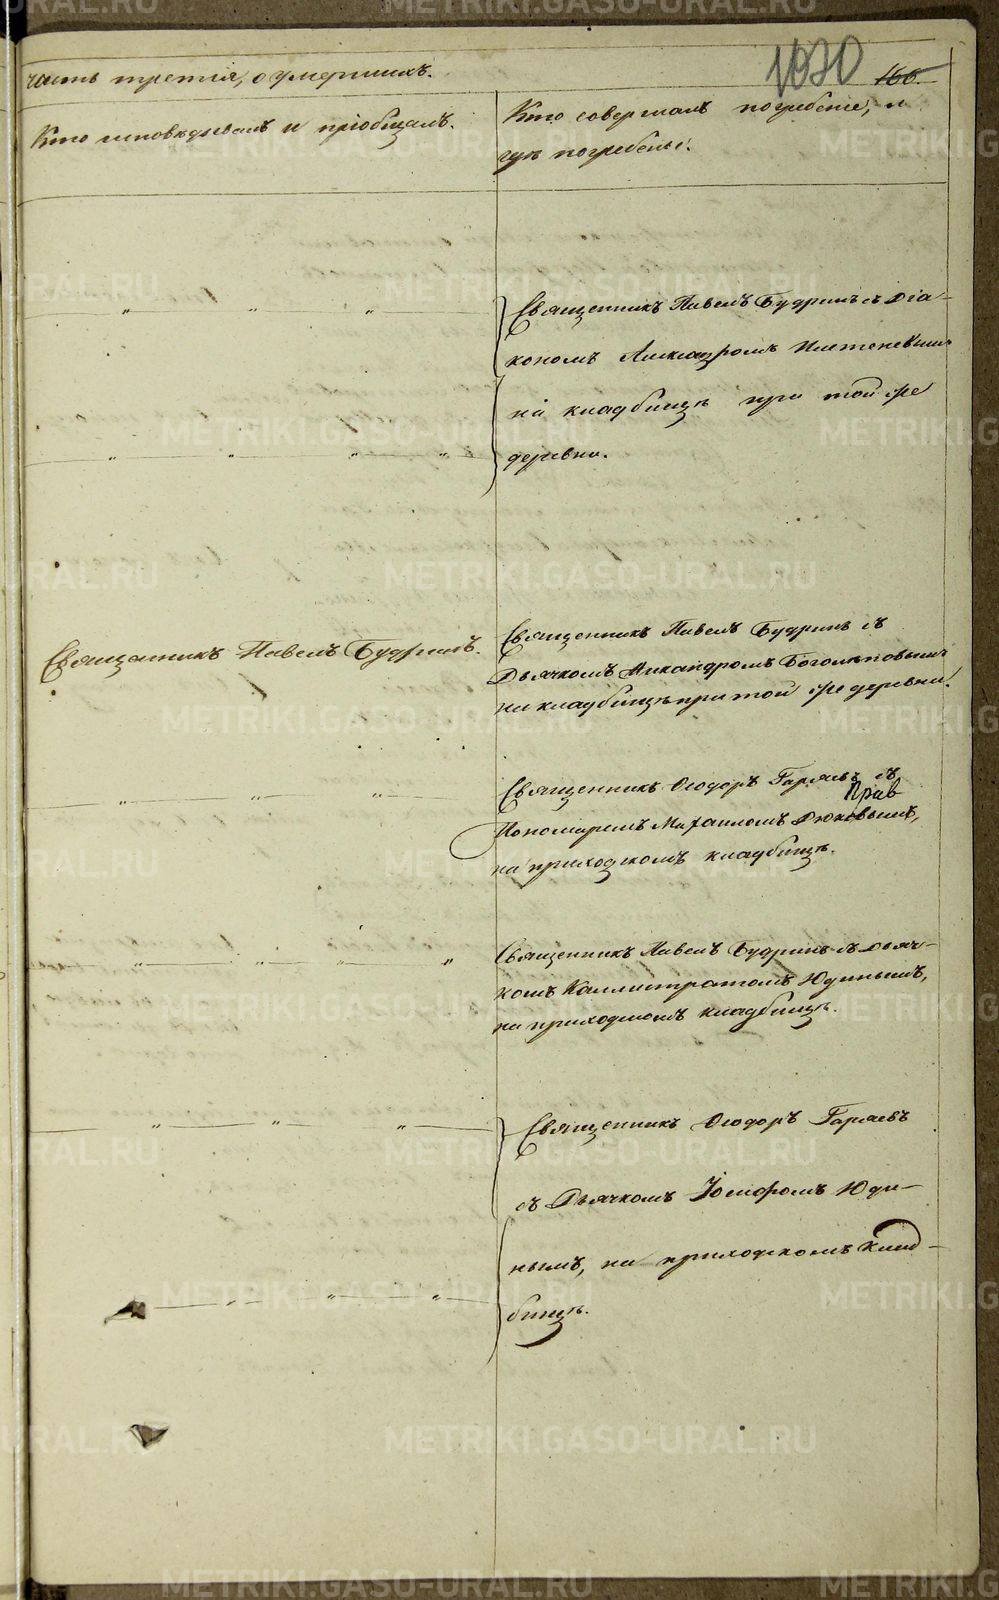 часть третія, о умершихъ.
1030
166.
Кто исповѣдывалъ и пріобщалъ.
Кто совершалъ погребеніе, и
гдѣ погребены.
Священникъ Павелъ Будринъ съ Діа-
кономъ Александромъ
на кладбищѣ при той же
деревни.
Священникъ Павелъ Будринъ.
Священникъ Павелъ Будринъ съ
Дьячкомъ Никандромъ Боголѣповымъ
на кладбищѣ при той же деревни.
Священникъ Ѳеодоръ Гаряевъ съ
Прав
Пономаремъ Михаиломъ Дюковымъ,
на приходскомъ кладбищѣ.
Священникъ Павелъ Будринъ съ Дьяч-
комъ Каллистратомъ Юдинымъ,
на приходскомъ кладбищѣ.
Священникъ Ѳеодоръ Гаряевъ
съ Дьячкомъ Іосифомъ Юди-
нымъ, на приходскомъ клад-
бищѣ.
METRIKI.GASO-URAL.RU